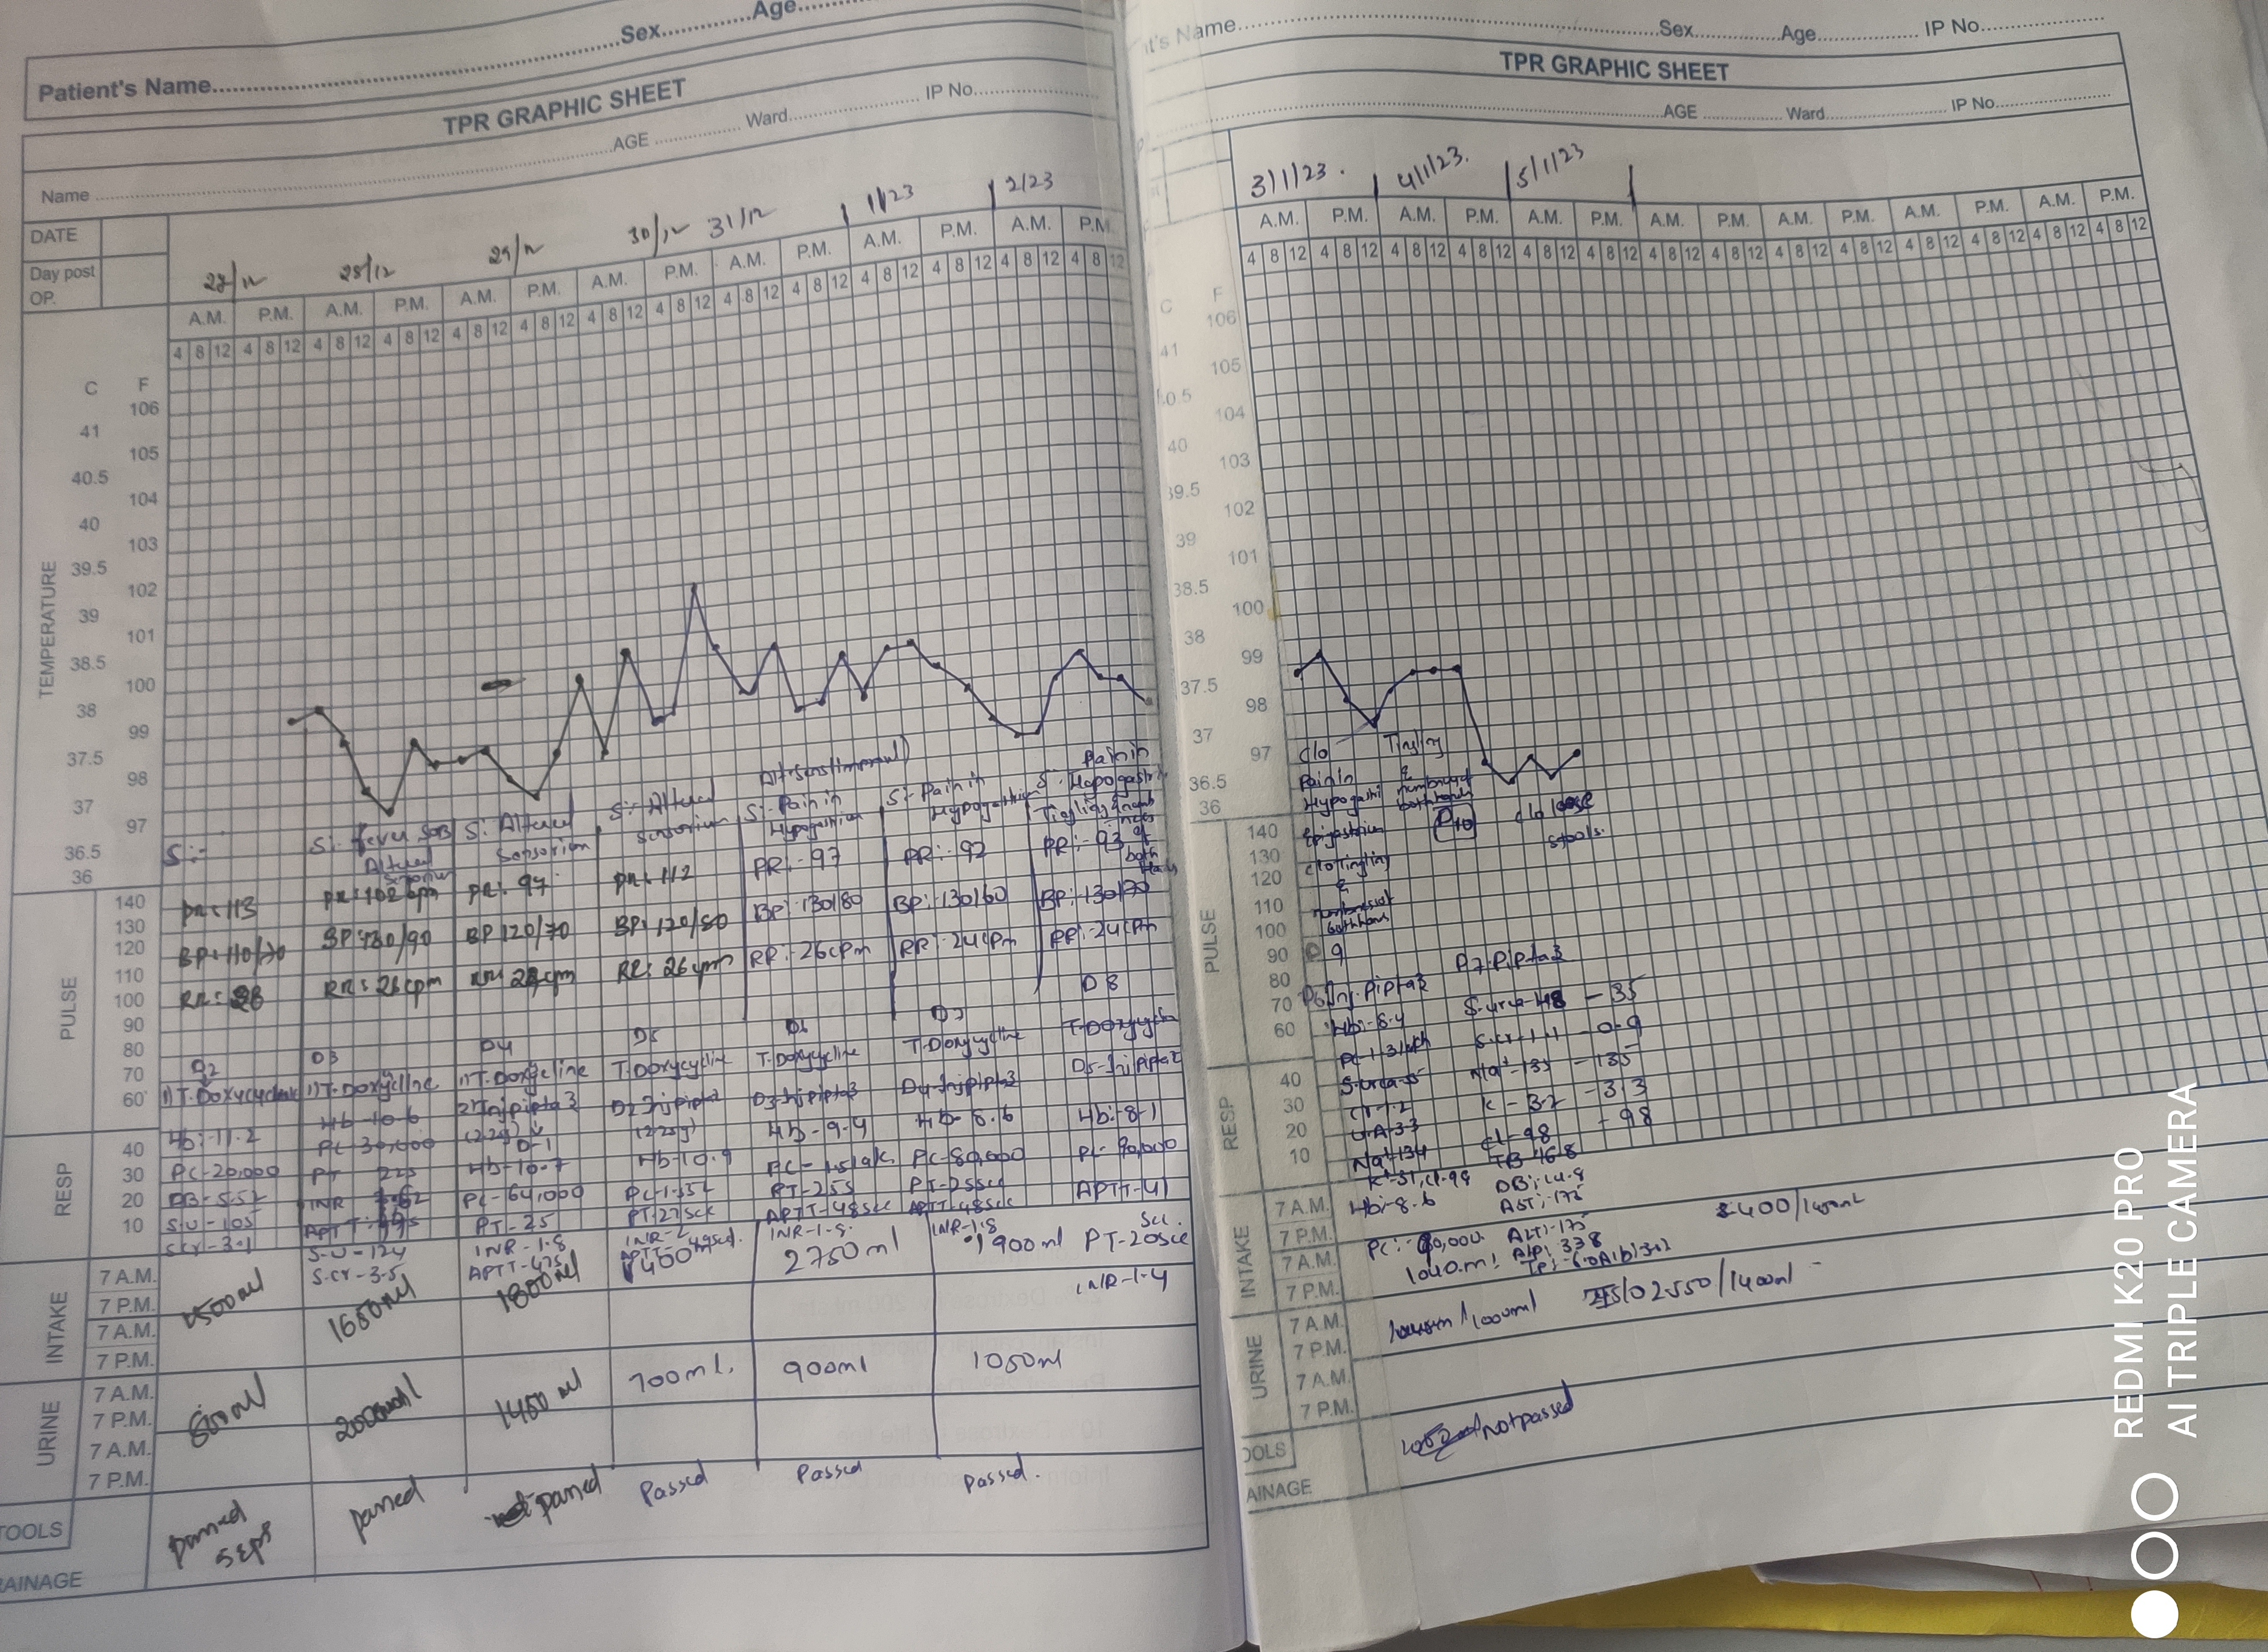 Sex..............Age..........
Patient's Name..............
TPR GRAPHIC SHEET
Name ..............AGE ..............Ward..............IP No..............
DATE
Day post OP.
28/12 29/12 30/12 31/12 1/23 2/23
A.M. P.M. A.M. P.M. A.M. P.M. A.M. P.M. A.M. P.M. A.M. P.M. A.M. P.M.
4 8 12 4 8 12 4 8 12 4 8 12 4 8 12 4 8 12 4 8 12 4 8 12 4 8 12 4 8 12 4 8 12 4 8 12 4 8 12 4 8 12
TEMPERATURE
C F
106
41
105
40.5
104
40
103
39.5
102
39
101
38.5
100
38
99
37.5
98
37
97
36.5
36
S:-
S:- fever SOB
Altered
Sensorium
S: Altered
Sensorium
S:- Altered
Sensorium
S:- Pain in
Hypogastrium
S:- Pain in
Hypogastrium
S:- Pain in
Hypogastri
Tingling & numb
ness of
both
Hands
PULSE
140
130
120
110
100
90
80
70
60
PR: 113
PR: 102 bpm
PR: 97
PR: 112
PR:- 97
PR:- 92
PR:- 93
BP: 110/70
BP: 130/90
BP 120/70
BP: 120/80
BP:- 130/80
BP:- 130/60
BP:- 130/70
RR: 26cpm
RR: 26 cpm
RR:- 26cpm
RR:- 24cpm
RR:- 24cpm
D2 D3 D4 D5 D6 D7 D8
1) T. Doxycycline
1) T. Doxycycline
1) T. Doxycycline
T. Doxycycline
T. Doxycycline
T. Doxycycline
T. Doxycyclin
2) Inj pipta3
(2.25g)
D-1
D2 Inj pipta3
(2.25g)
D3-Inj pipta3
D4-Inj pipta3
D5-Inj pipta3
RESP
40
30
20
10
Hb:-11.2
PC-20,000
DB-5.52
S.U-105
S.cr-3.1
Hb-10.6
PC-30,000
PT 22s
INR
APTT
S.U-124
S.cr-3.5
Hb-10.7
PC-64,000
PT-25
INR-1.8
APTT-47s
Hb-10.9
PT-27sec
INR-2
Hb-9.4
PC-1.5lak
PT-25s
APTT-48sec
INR-1.8
Hb-8.6
PC-80,000
PT-25sec
APTT-48sec
INR-1.8
Hb:-8.1
PC-90,000
APTT-41
Sec.
PT-20sec
INR-1.4
INTAKE
7 A.M.
7 P.M.
7 A.M.
7 P.M.
1500ml
1650ml
1800ml
1400ml
2750ml
1900ml
URINE
7 A.M.
7 P.M.
7 A.M.
7 P.M.
800ml
2000ml
1450ml
700ml.
900ml
1050ml
TOOLS
passed
passed
passed
Passed
Passed
Passed.
RAINAGE
t's Name..............Sex..............Age..............IP No..............
TPR GRAPHIC SHEET
AGE ..............Ward..............IP No..............
3/1/23. 4/1/23. 5/1/23
A.M. P.M. A.M. P.M. A.M. P.M. A.M. P.M. A.M. P.M. A.M. P.M. A.M. P.M.
4 8 12 4 8 12 4 8 12 4 8 12 4 8 12 4 8 12 4 8 12 4 8 12 4 8 12 4 8 12 4 8 12 4 8 12 4 8 12 4 8 12
C F
106
41
105
40.5
104
40
103
39.5
102
39
101
38.5
100
38
99
37.5
98
37
97
36.5
36
c/o
Pain in
Hypogastri
Epigastrium
c/o Tingling
&
numbness of
both hans
Tingling
&
numbness of
both hands
D10
c/o loose
stools.
PULSE
140
130
120
110
100
90
80
70
60
D9
D6 Inj. Pipta3
D7 Pipta3
Hb:-8.4
S.urea-55
Cr-1.2
U.A-3.3
Na+-134
Hb:-8.6
S.urea-48 - 35
S.cr-1.1 - 0.9
Na+-135 - 135
K-3.2 - 3.3
Cl-98 - 98
DB:-14.8
AST:-175
ALT:-175
ALP:-338
RESP
40
30
20
10
INTAKE
7 A.M.
7 P.M.
7 A.M.
7 P.M.
1040.ml
URINE
7 A.M.
7 P.M.
7 A.M.
7 P.M.
2550/1400ml
OOLS
Not passed
AINAGE
REDMI K20 PRO
AI TRIPLE CAMERA